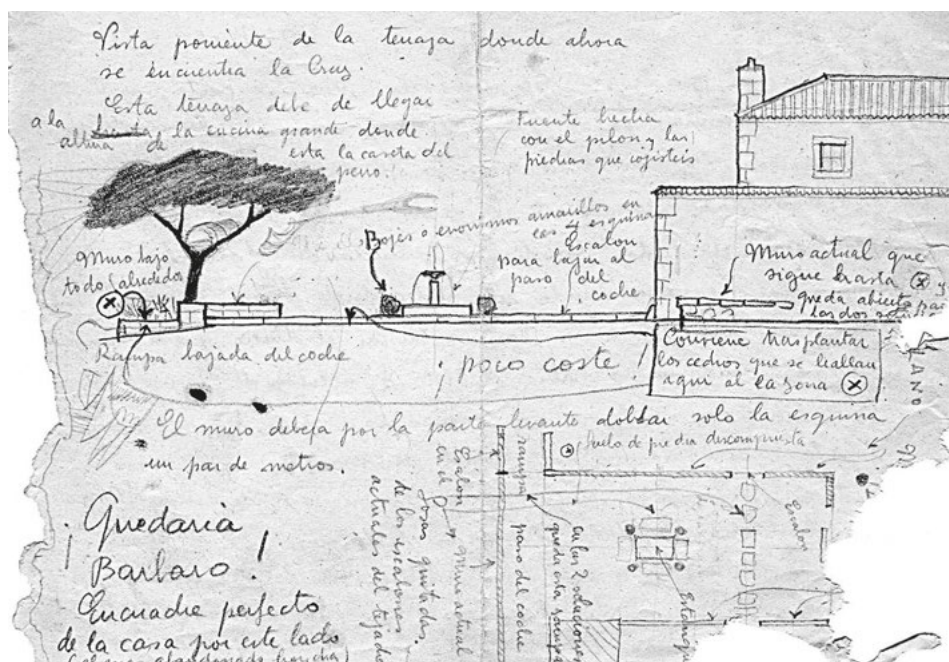 Vista poniente de la terraza donde ahora
se encuentra la Cruz.
Esta terraza debe de llegar
a la altura de la cocina grande donde
esta la caseta del
perro.
Fuente hecha
con el pilon y las
piedras que cogisteis
B
Bojes o evonimos amarillos en
las 4 esquinas
Escalon
para bajar al
paso del
coche
Muro bajo
todo alrededor
Muro actual que
sigue hasta
queda abierto
las dos
Rampa bajada del coche
¡poco coste!
Conviene trasplantar
los cedros que se hallan
aqui al la zona
El muro debeja por la parte levante doblar solo la esquina
un par de metros.
Suelo de piedra descompuesta
¡Quedaria
Barbaro!
Encuadre perfecto
de la casa por este lado
Losas quitadas
de los escalones
actuales del tejado
Escalon
en el muro actual
rampa
paso del coche
en las 2 soluciones
queda esta
Escalon
Estanque